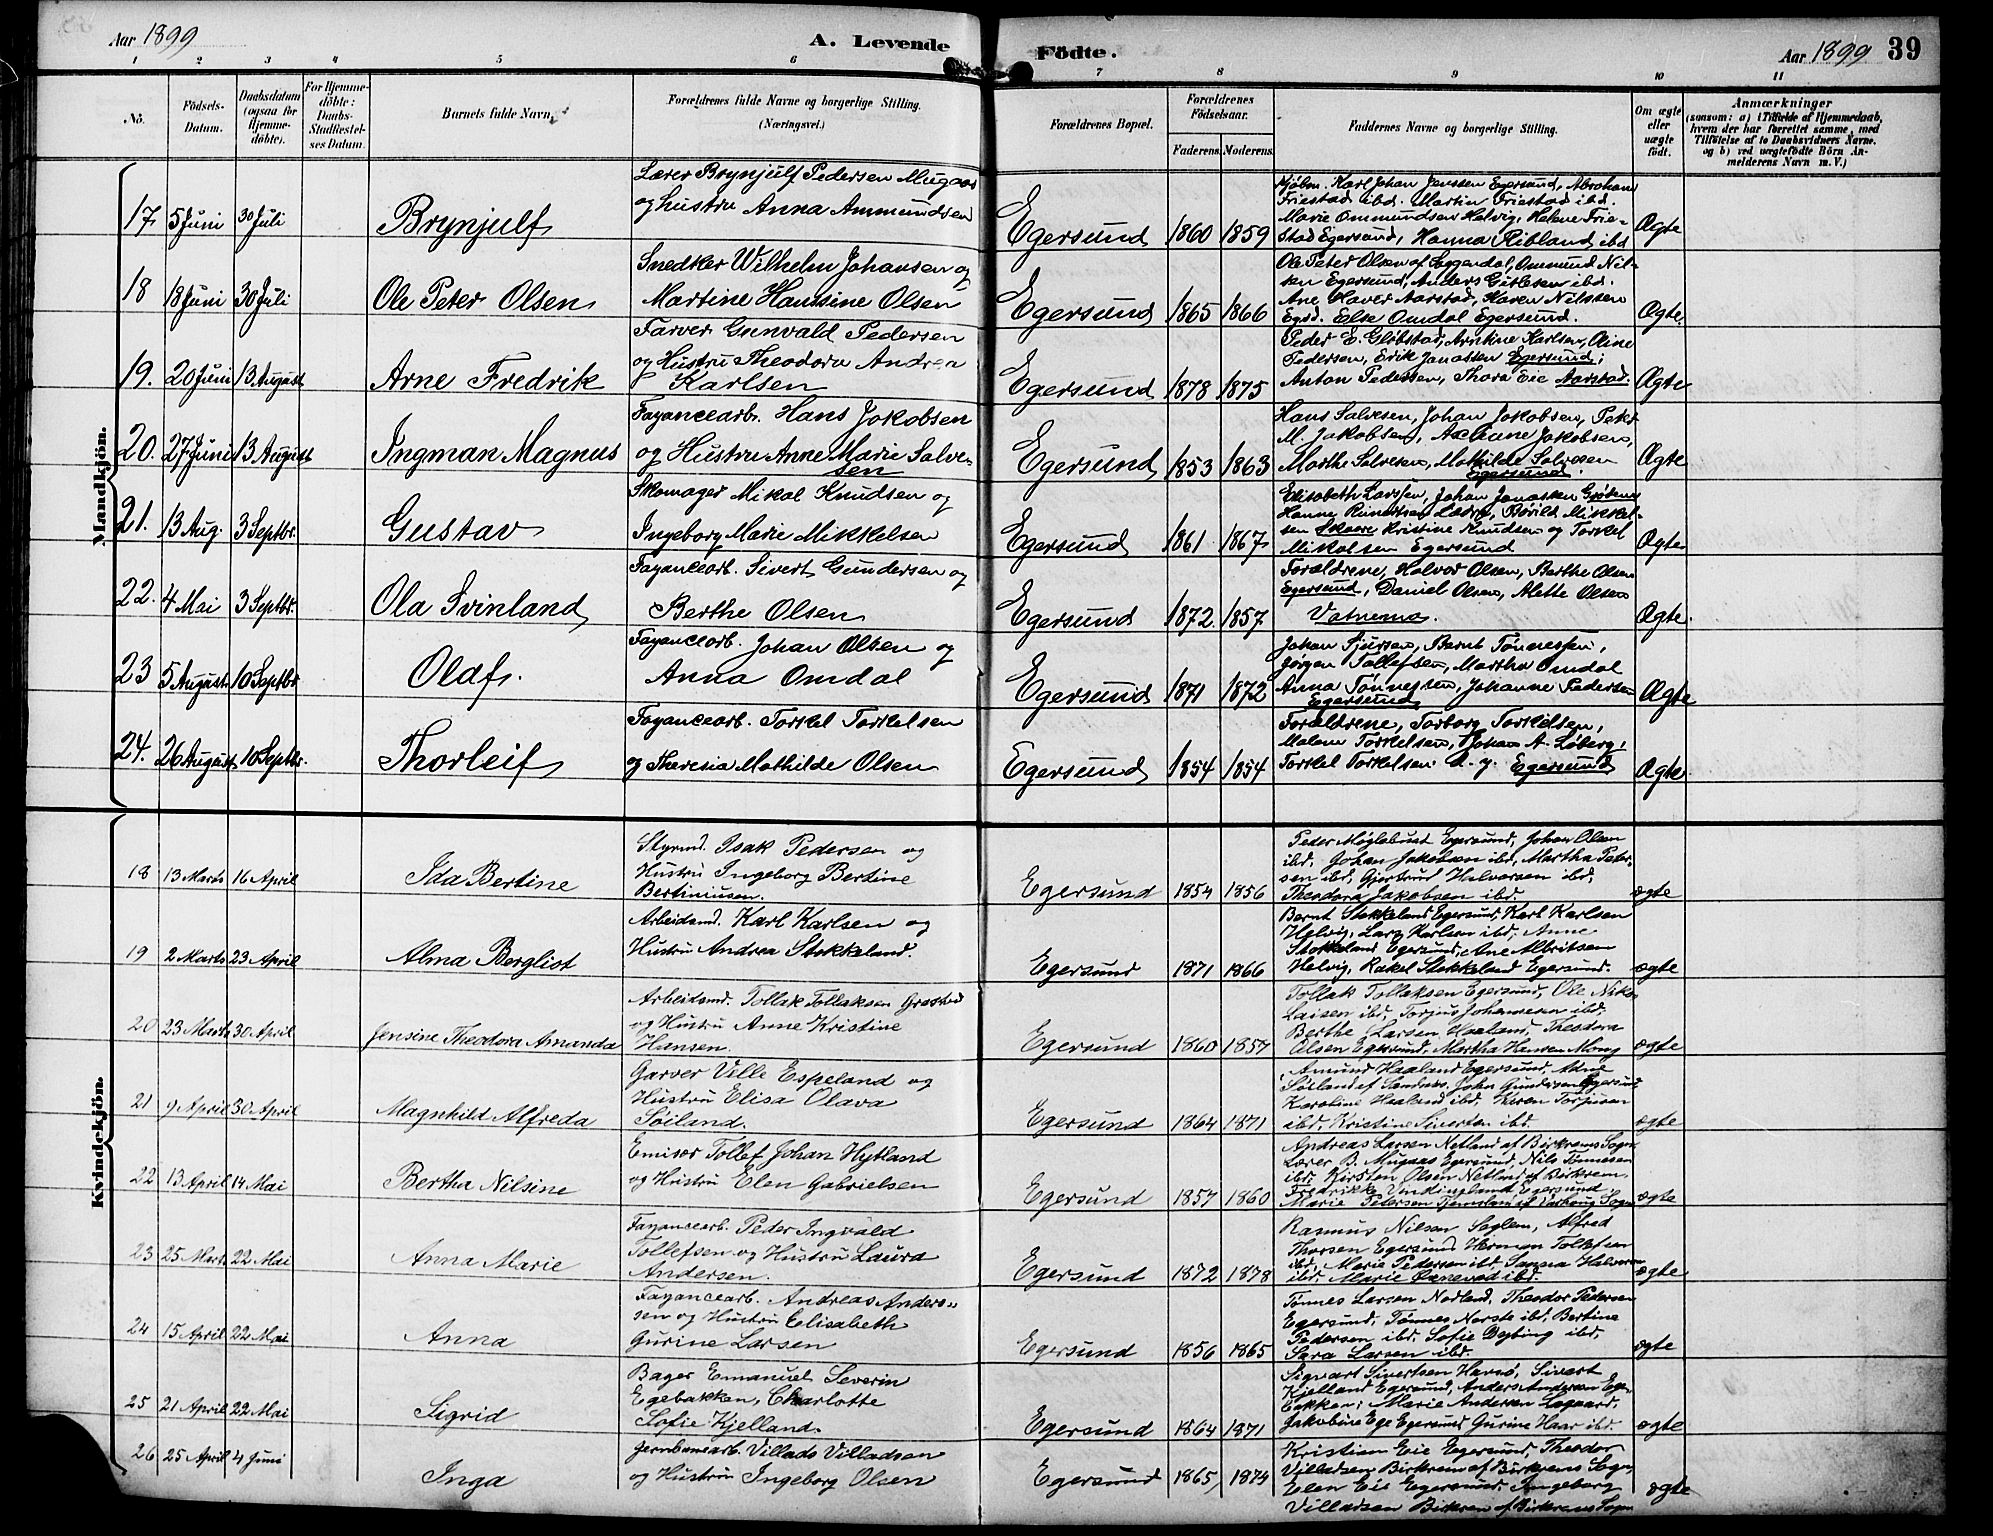 Aar 1899
A. Levende Födte.
Aar 1899 39
1 2 3 4 5 6 7 8 9 10 11
No.
Födsels-
Datum.
Daabsdatum
(ogsaa for
Hjemme-
döbte).
For Hjemme-
döbte:
Daabs-
Stadfæstel-
ses Datum.
Barnets fulde Navn.
Forældrenes fulde Navne og borgerlige Stilling.
(Næringsvei.)
Forældrenes Bopæl.
Forældrenes
Födselsaar.
Faderens Moderens
Faddernes Navne og borgerlige Stilling.
Om ægte
eller
uægte
født.
Anmærkninger
(saasom: a) i Tilfælde af Hjemmedaab,
hvem der har forrettet samme, med
Tilföielse af to Daabsvidners Navne.
og b) ved uægtefödte Börn An-
melderens Navn m. V.)
Mandkjön.
17 5 Juni 30 Juli
Brynjulf
Lærer Brynjulf Pedersen Mugaas
og hustru Anna Ammundsen
Egersund 1860 1859
Kjøbm. Karl Johan Jenssen Egersund, Abraham
Friestad ibd. Martin Friestad ibd.
Marie Ommundsen Helvig, Helene Frie-
stad Egersund, Hanna Ribland ibd
Ægte
18 18 Juni 30 Juli
Ole Peter Olsen
Snedker Wilhelm Johansen og
Martine Hanssine Olsen
Egersund 1865 1866
Ole Peter Olsen af Soggendal, Ommund Nil-
sen Egersund, Anders Gitlesen ibd.
Ane Haver Aarstad, Karen Nilssen
Egsd. Else Omdal Egersund.
Ægte.
19. 20 Juni 13 August
Arne Fredrik
Farver Gunvald Pedersen
og Hustru Theodora Andrea
Karlsen
Egersund 1878 1875
Peder E. Gløbstad, Arntine Karlsen, Oline
Pedersen, Erik Jonassen Egersund;
Anton Pedersen, Thora Eie Aarstad.
Ægte
20. 27 Juni 13 August
Ingman Magnus
Fayancearb. Hans Jakobsen
og Hustru Anne Marie Salve-
sen
Egersund 1853 1863
Hans Salvesen, Johan Jakobsen, Peter
M. Jakobsen, Jakobsen,
Marthe Salvesen, Mathilde Salvesen
Egersund.
Ægte
21. 13 Aug. 3 Septbr.
Gustav
Skomager Mikal Knudsen og
Ingeborg Marie Mikkelsen
Egersund 1861 1867
Elisabeth Larssen, Johan Jonassen
Hanne Mikkel-
sen Skaare Kristine Knudsen og Torkel
Mikalsen Egersund
Ægte
22. 4 Mai 3 Septbr.
Ola Svinland
Fayancearb. Sivert Gundersen og
Berthe Olsen
Egersund 1872 1857
Forældrene, Halvor Olsen, Berthe Olsen
Egersund, Daniel Olsen, Alette Olsen
Vatnemo.
Ægte.
23 5 August 10 Septbr
Olaf.
Fayancearb. Johan Olsen og
Anna Omdal
Egersund 1871 1872
Johan Sjursen, Bernt Tønnessen,
Jørgen Tollefsen, Martha Omdal
Anna Tønnessen, Johanne Pedersen
Egersund
Ægte
24. 26 August 10 Septbr.
Thorleif
Fayancearb. Torkel Torkelsen
og Theresia Mathilde Olsen
Egersund 1854 1854
Forældrene, Torborg Torkelsen,
Malene Torkelsen, Johan A. Løberg,
Torkel Torkelsen d. y. Egersund
Ægte
Kvindekjön.
18 13 Marts 16 April
Ida Bertine
Styrmd. Isak Pedersen og
Hustru Ingeborg Bertine
Bertiniusen.
Egersund 1854 1856
Peder Møglebust Egersund, Johan Olsen
ibd, Johan Jakobsen ibd, Martha Peter-
sen ibd, Gjertrud Halvorsen ibd,
Theodora Jakobsen ibd.
ægte
19 2 Marts 23 April
Alma Bergliot
Arbeidsmd. Karl Karlsen og
Hustru Andrea Stokkeland.
Egersund 1871 1866
Bernt Stokkeland Egersund, Karl Karlsen
Helvig, Lars Karlsen ibd, Anne
Stokkeland Egersund, Ane Albritsen
Helvig, Rakel Stokkeland Egersund.
ægte
20 23 Marts 30 April
Jensine Theodora Amanda
Arbeidsmd. Tollak Tollaksen
og Hustru Anne Kristine
Hansen.
Egersund 1860 1857
Tollak Tollaksen Egersund, Ole Niko-
laisen ibd, Torjus Johannesen ibd.
Berthe Larsen Haaland, Theodora
Olsen Egersund, Martha Hansen Mong
ægte
21 9 April 30 April
Magnhild Alfreda
Garver Ville Espeland og
Hustru Elisa Olava
Søiland.
Egersund 1864 1871
Amund Haaland Egersund, Atne
Søiland af Sandnæs, John Gundersen Egersund
Karoline Haaland ibd, Karen Torjusen
ibd, Kristine Sivertsen ibd.
ægte
22 13 April 14 Mai
Bertha Nilsine
Emisær Tollef Johan Hytland
og Hustru Elen Gabrielsen
Egersund 1857 1860
Andreas Larsen Netland af Birkrems Sogn,
Lærer B. Mugaas Egersund, Nils Tønnesen
ibd, Kirsten Olsen Netland af Birkrem
Fredrikke Vindingland Egersund
Marie Petersen af Sogn
ægte
23 25 Marts 22 Mai
Anna Marie
Fayancearb. Peder Ingvald
Tollefsen og Hustru Laura
Andersen.
Egersund 1872 1878
Rasmus Nilsen Soglem, Alfred
Thorsen Egersund, Herman Tollefsen
ibd, Marie Pedersen ibd, Sanna Halvorsen
ibd, Marie Oxnevad ibd.
ægte
24 15 April 22 Mai
Anna
Fayancearb. Andreas Anders-
sen og Hustru Elisabeth
Gurine Larsen
Egersund 1856 1865
Tønnes Larsen Nodland, Theodor Pedersen
Egersund, Tønnes ibd, Bertine
Pedersen ibd, Sofie Dybing ibd,
Sara Larsen ibd.
ægte
25 21 April 22 Mai
Sigrid
Bager Emanuel Severin
Egebakken, Charlotte
Sofie Kjelland.
Egersund 1864 1871
Sigvart Sivertsen Havsø, Sivert
Kjelland Egersund, Anders Andersen Ege-
bakken, Marie Andersen
Jakobine Ege Egersund, Gurine Haar ibd.
ægte
26 25 April 4 Juni
Inga
Jernbanearb. Villads Villadsen
og Hustru Ingeborg Olsen
Egersund 1865, 1874
Kristian Eie Egersund, Theodor
Villadsen Birkrem af Birkrems Sogn,
Elen Eie Egersund, Ingeborg
Villadsen Birkrem af Birkrems Sogn
ægte